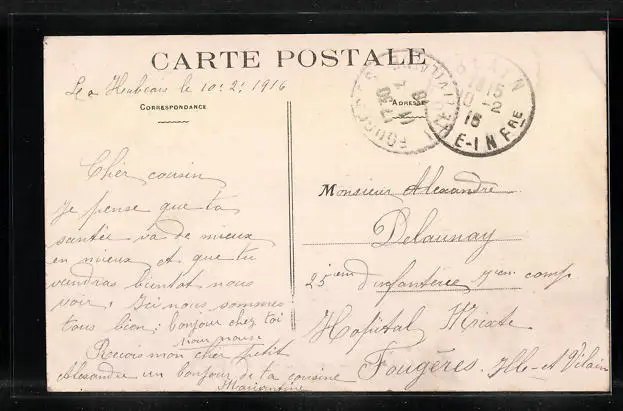 CARTE POSTALE
le 10. 2. 1916
CORRESPONDANCE
ADRESSE
FOUGERES
ILLE ET VILAINE
17 30
11 - 2
16
BLAIN
15
10 - 2
16
E-INFRE
Cher cousin
Je pense que ta
santée va de mieux
en mieux et que tu
viendras bientot nous
voir; Ici nous sommes
tous bien; bonjour chez toi
Recois mon cher petit
Alexandre un bonjour de ta cousine
Monsieur Alexandre
Delaunay
25iem d'infanterie 7em comp
Hopital Mixte
Fougères. Ille-et-Vilain